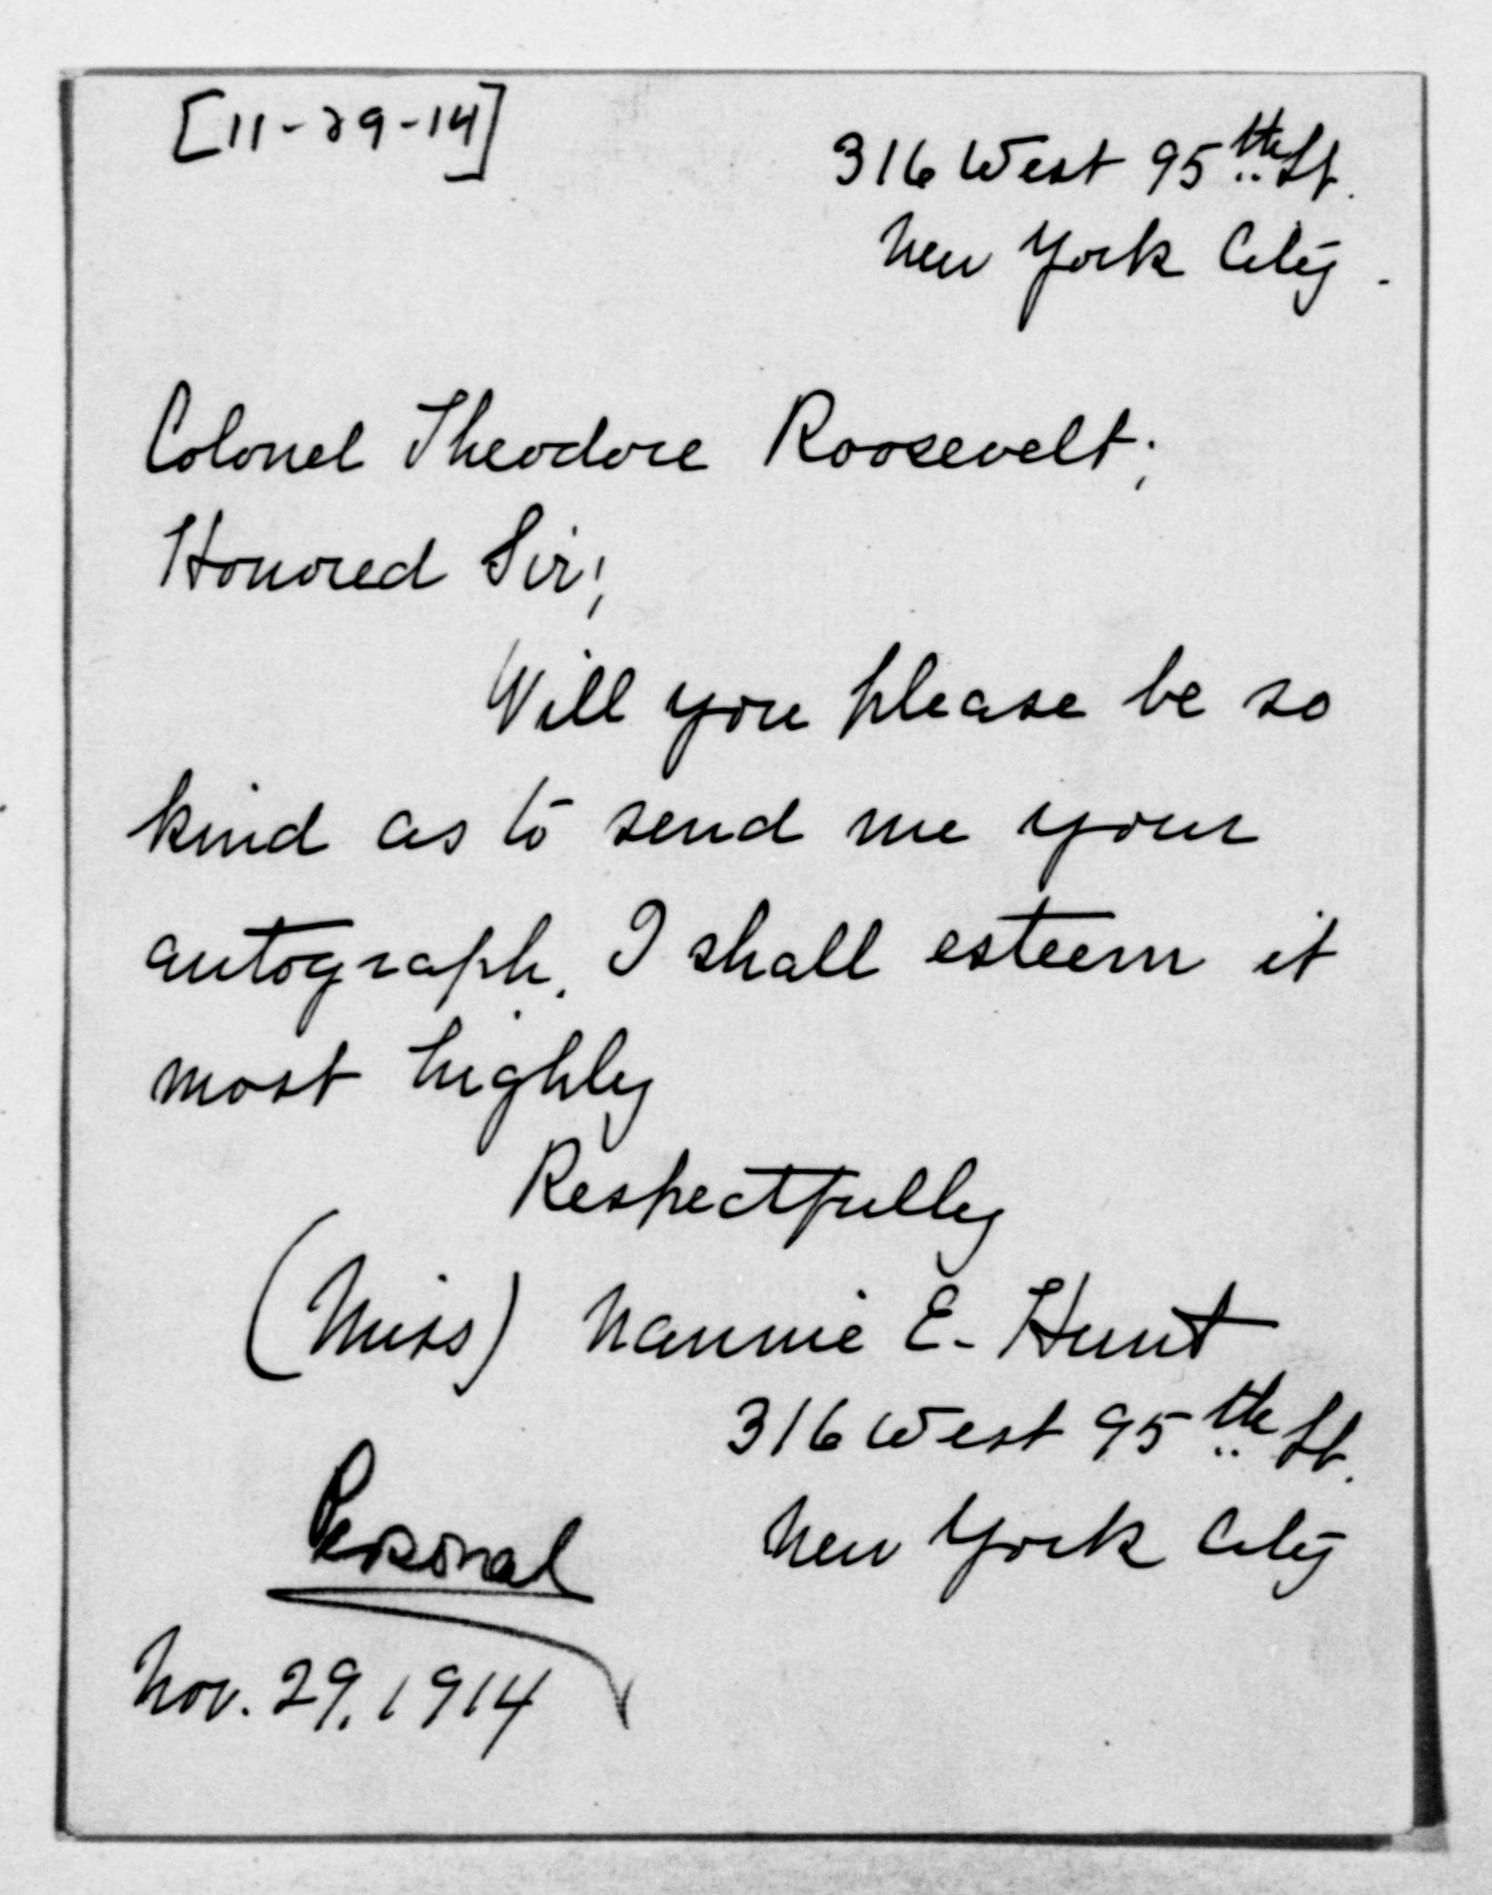 [11-29-14]
316 West 95th St.
New York City.
Colonel Theodore Roosevelt;
Honored Sir;
Will you please be so
kind as to send me your
autograph. I shall esteem it
most highly
Respectfully
(Miss) Nannie E. Hunt
316 West 95th St.
New York City
Personal
Nov. 29, 1914